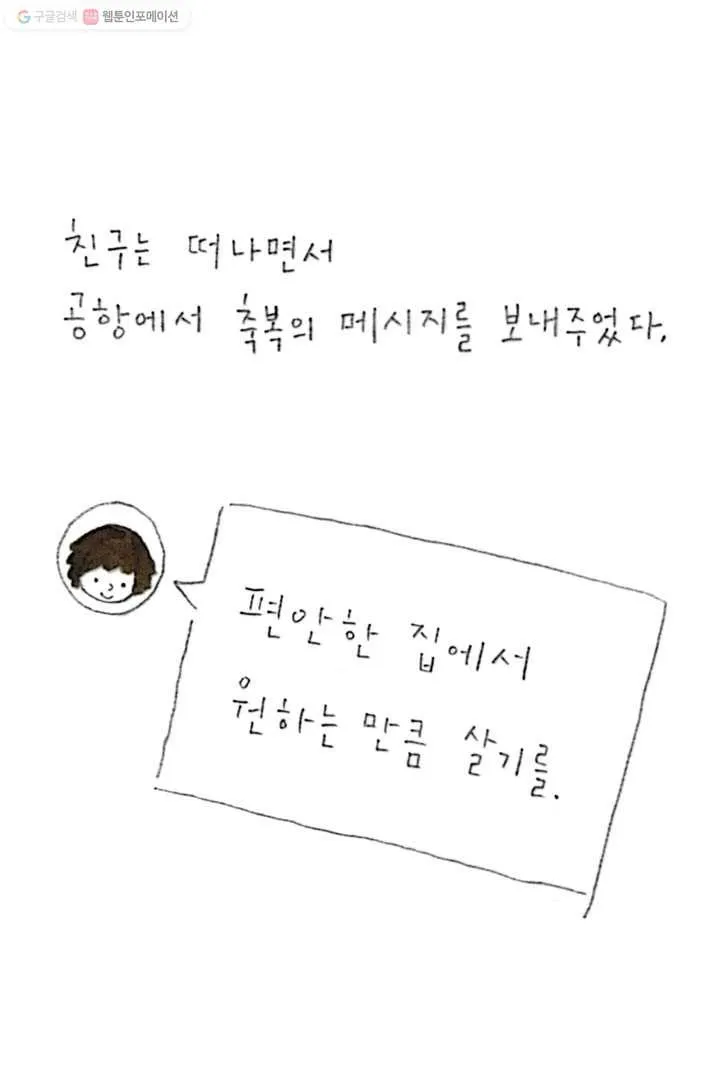 구글검색 웹툰인포메이션
친구는 떠나면서
공항에서 축복의 메시지를 보내주었다.
편안한 집에서
원하는 만큼 살기를.